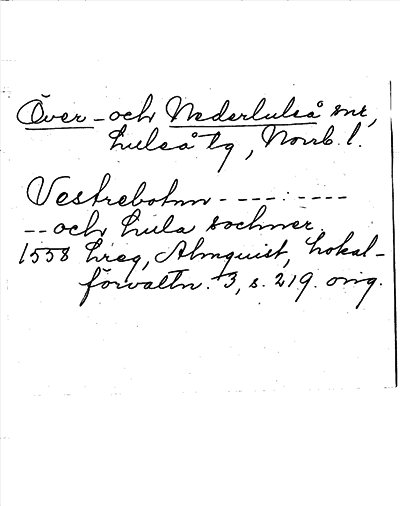 Över- och Nederluleå snr,
Luleå tg, Norrb. l.
Vestrebotnn - - - - : - - - -
-- och Lula sochner,
1558 Lreg, Almquist, Lokal-
förvaltn. 3, s. 219. orig.